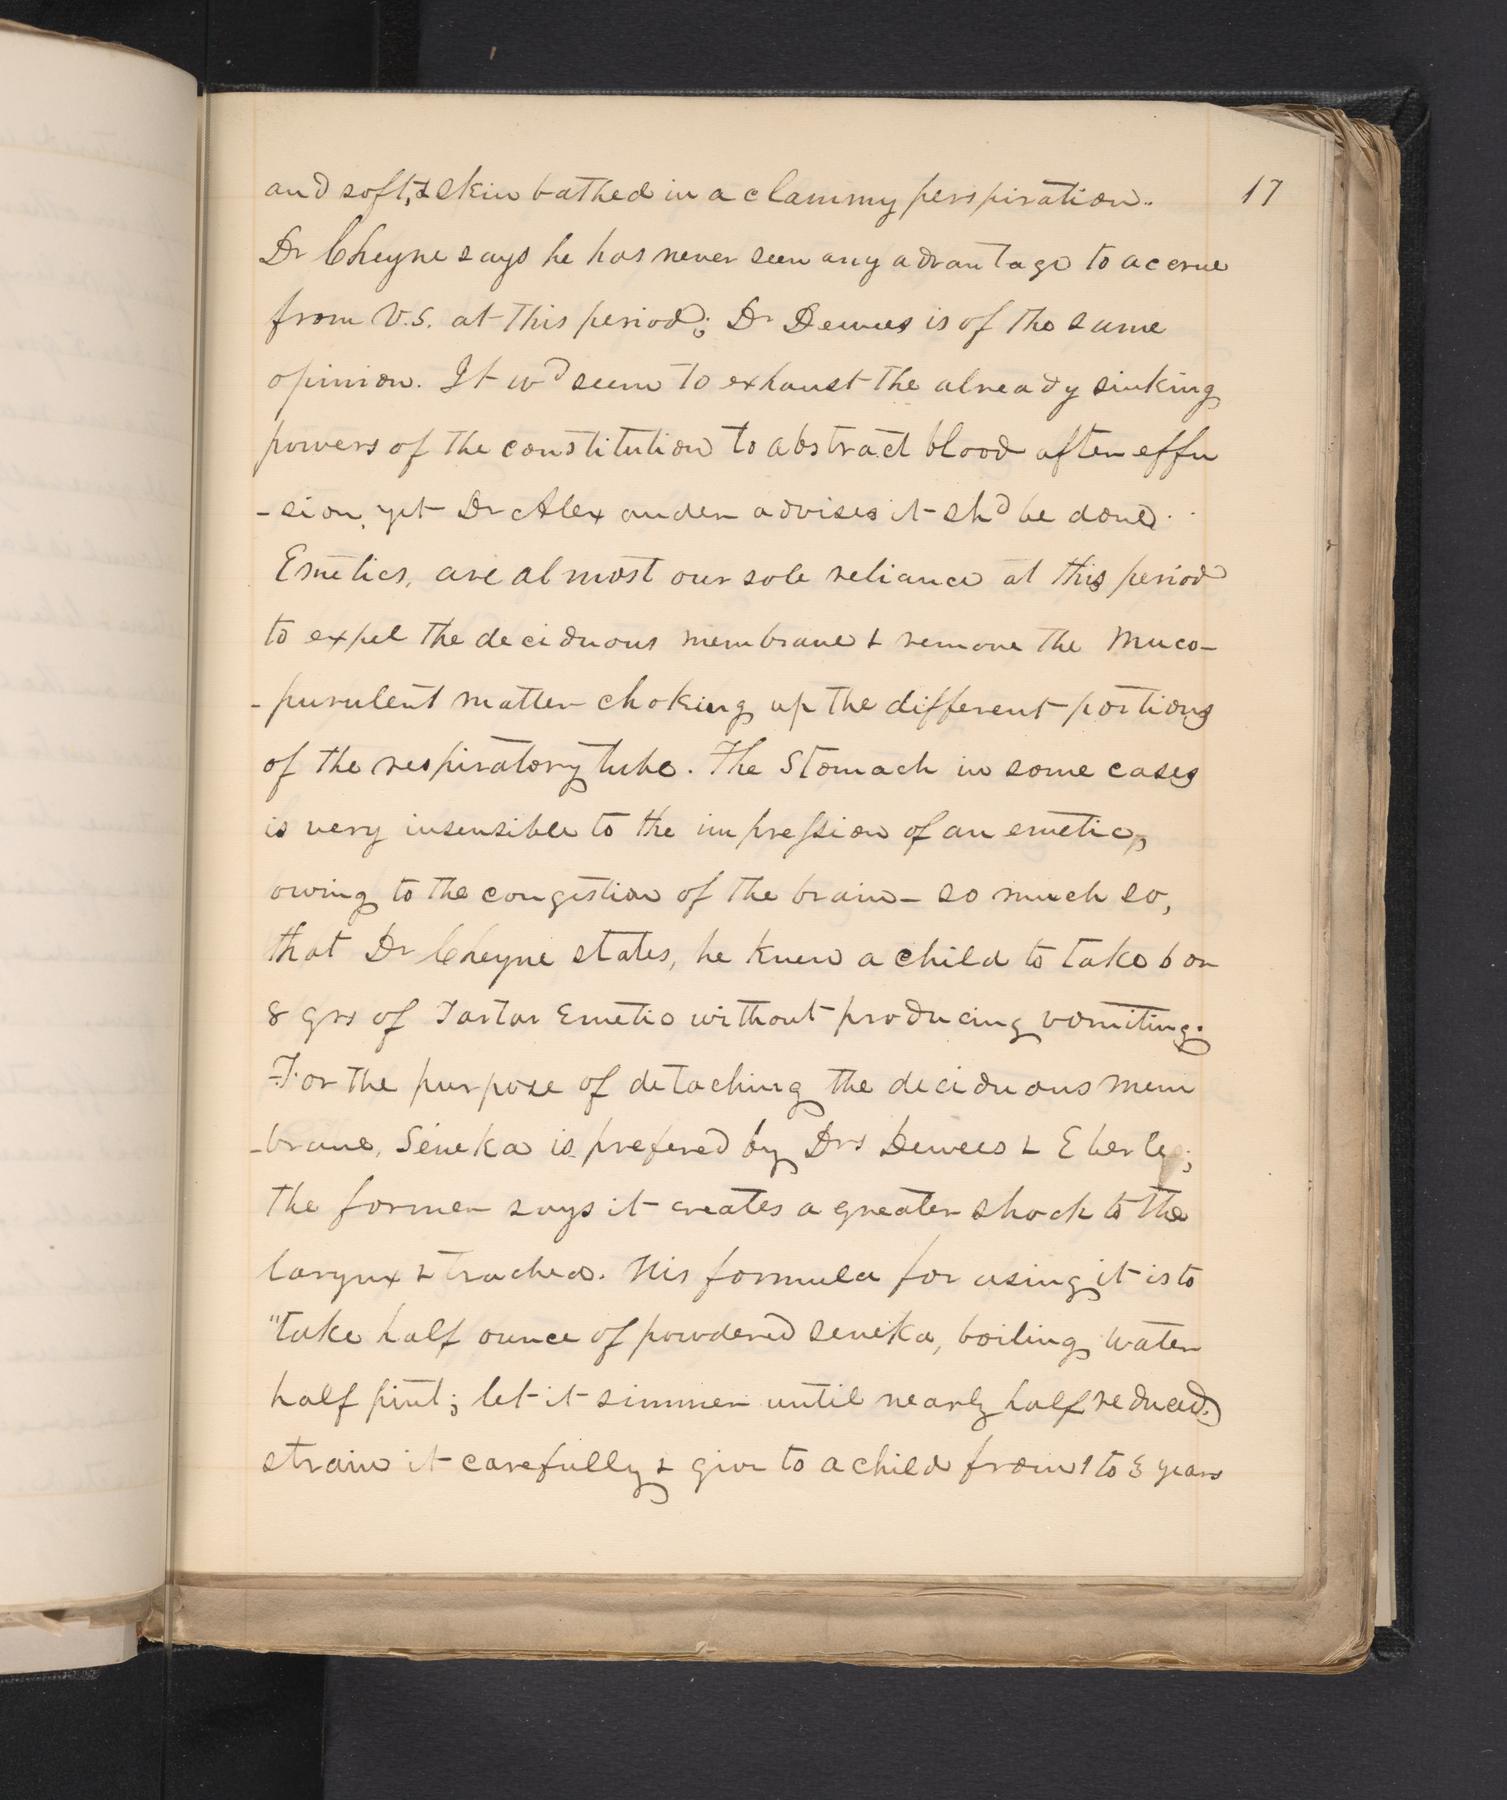 17
and soft, & skin bathed in a clammy perspiration.
Dr Cheyne says he has never seen any advantage to accrue
from V.S. at this period; Dr Dewees is of the same
opinion. It wd seem to exhaust the already sinking
powers of the constitution to abstract blood after effu
-sion, yet Dr Alexander advises it shd be done.
Emetics, are almost our sole reliance at this period
to expel the deciduous membrane & remove the Muco-
-purulent matter choking up the different portions
of the respiratory tube. The Stomach in some cases
is very insensible to the impression of an emetic,
owing to the congestion of the brain - so much so,
that Dr Cheyne states, he knew a child to take 6 or
8 grs of Tartar Emetic without producing vomiting.
For the purpose of detaching the deciduous mem
-brane, Seneka is prefered by Drs Dewees & Eberle;
the former says it creates a greater shock to the
larynx & trachea. His formula for using it is to
"take half ounce of powdered seneka, boiling water
half pint; let it simmer until nearly half reduced.
strain it carefully & give to a child from 1 to 3 years